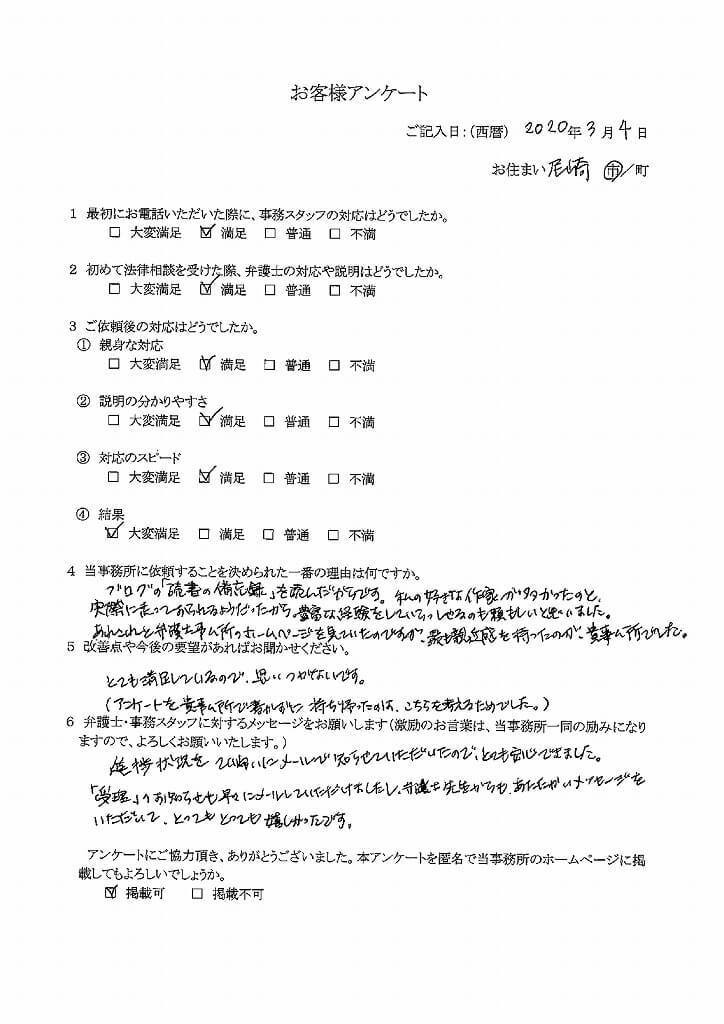 お客様アンケート
ご記入日：（西暦） 2020年3月4日
お住まい 尼崎 市／町
1 最初にお電話いただいた際に、事務スタッフの対応はどうでしたか。
□ 大変満足 ☑ 満足 □ 普通 □ 不満
2 初めて法律相談を受けた際、弁護士の対応や説明はどうでしたか。
□ 大変満足 ☑ 満足 □ 普通 □ 不満
3 ご依頼後の対応はどうでしたか。
① 親身な対応
□ 大変満足 ☑ 満足 □ 普通 □ 不満
② 説明の分かりやすさ
□ 大変満足 ☑ 満足 □ 普通 □ 不満
③ 対応のスピード
□ 大変満足 ☑ 満足 □ 普通 □ 不満
④ 結果
☑ 大変満足 □ 満足 □ 普通 □ 不満
4 当事務所に依頼することを決められた一番の理由は何ですか。
ブログの「読書の備忘録」を読んだからです。私の好きな作家が多かったのと、
実際に走っておられるようだったから。豊富な経験をしていらっしゃるのも頼もしいと思いました。
あれこれと弁護士事ム所のホームページを見ていたのですが、最も親近感を持ったのが、貴事ム所でした。
5 改善点や今後の要望があればお聞かせください。
とても満足しているので、思いつかないです。
（アンケートを貴事ム所で書かずに持ち帰ったのは、こちらを考えるためでした。）
6 弁護士・事務スタッフに対するメッセージをお願いします（激励のお言葉は、当事務所一同の励みになり
ますので、よろしくお願いいたします。）
進捗状況をてい寧にメールで知らせていただいたので、とても安心できました。
「受理」のお知らせも早々にメールしていただけましたし、弁護士先生からも、あたたかいメッセージを
いただいて、とってもとっても嬉しかったです。
アンケートにご協力頂き、ありがとうございました。本アンケートを匿名で当事務所のホームページに掲
載してもよろしいでしょうか。
☑ 掲載可 □ 掲載不可